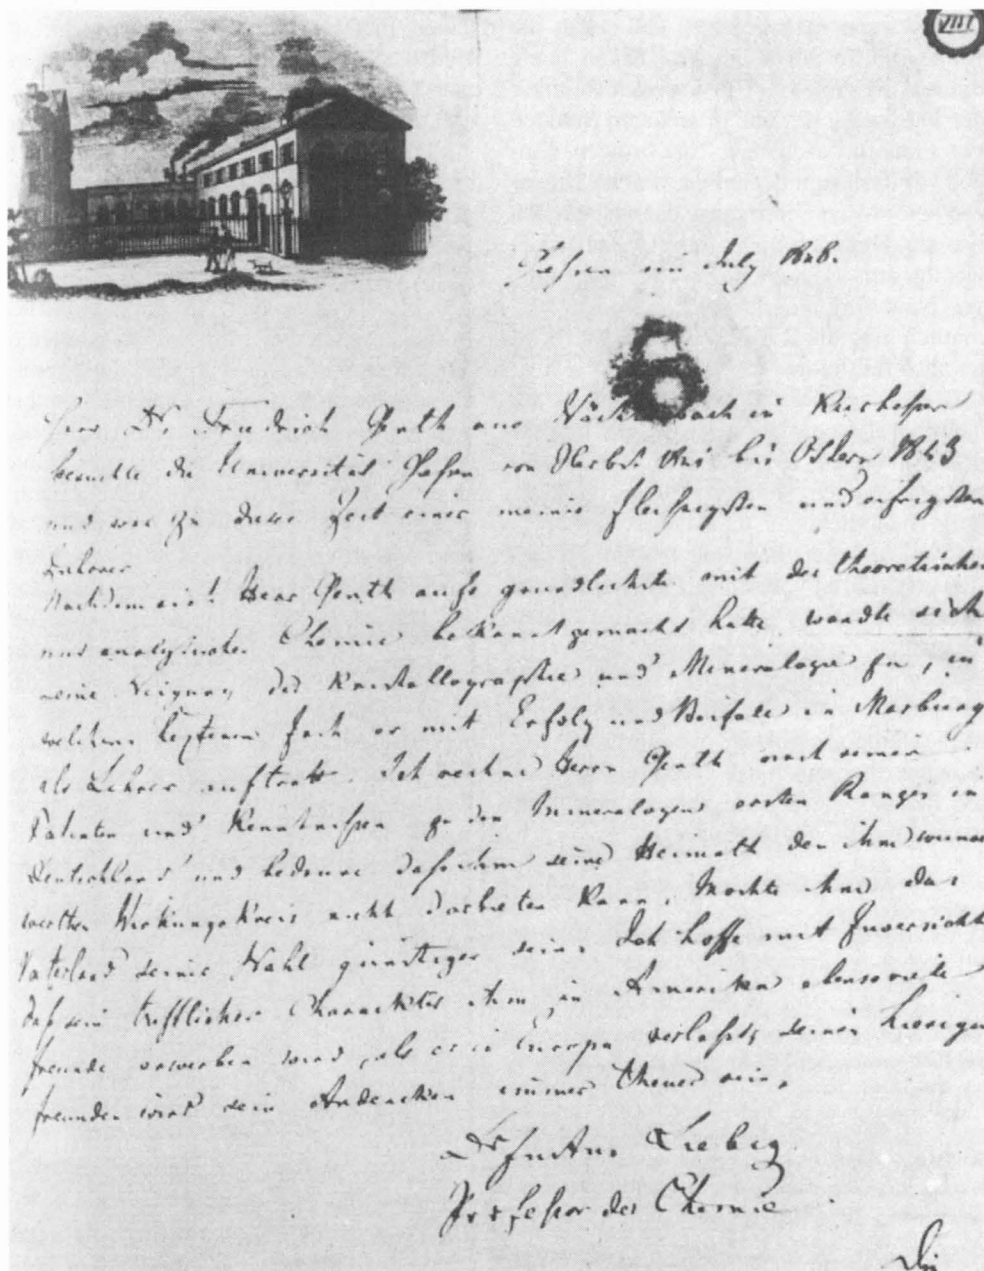 VIII
Giessen im July 1848.
Herr Dr. Friedrich Genth aus Wächtersbach in Kurhessen
besuchte die Universität Giessen von Herbst 1841 bis Ostern 1843
und war zu dieser Zeit einer meiner fleissigsten und eifrigsten
Zuhörer
Nachdem sich Herr Genth aufs gründlichste mit der theoretischen
und analytischen Chemie bekannt gemacht hatte, wandte sich
seine Neigung der Kristallographie und Mineralogie zu, in
welchem letzteren Fach er mit Erfolg und Beifall in Marburg
als Lehrer auftrat. Ich rechne Herrn Genth nach seinen
Talenten und Kenntnissen zu den Mineralogen ersten Ranges in
Deutschland und bedaure dass ihm seine Heimath den ihm
werthen Wirkungskreis nicht darbieten kann. Mochte ihm das
Vaterland seiner Wahl günstiger sein. Ich hoffe mit Zuversicht
dass sein trefflicher Charackter ihm in Amerika ebensoviele
Freunde erwerben wird, als er in Europa verlässt, seinen hiesigen
Freunden wird sein Andencken immer theuer sein.
Dr Justus Liebig
Professor der Chemie